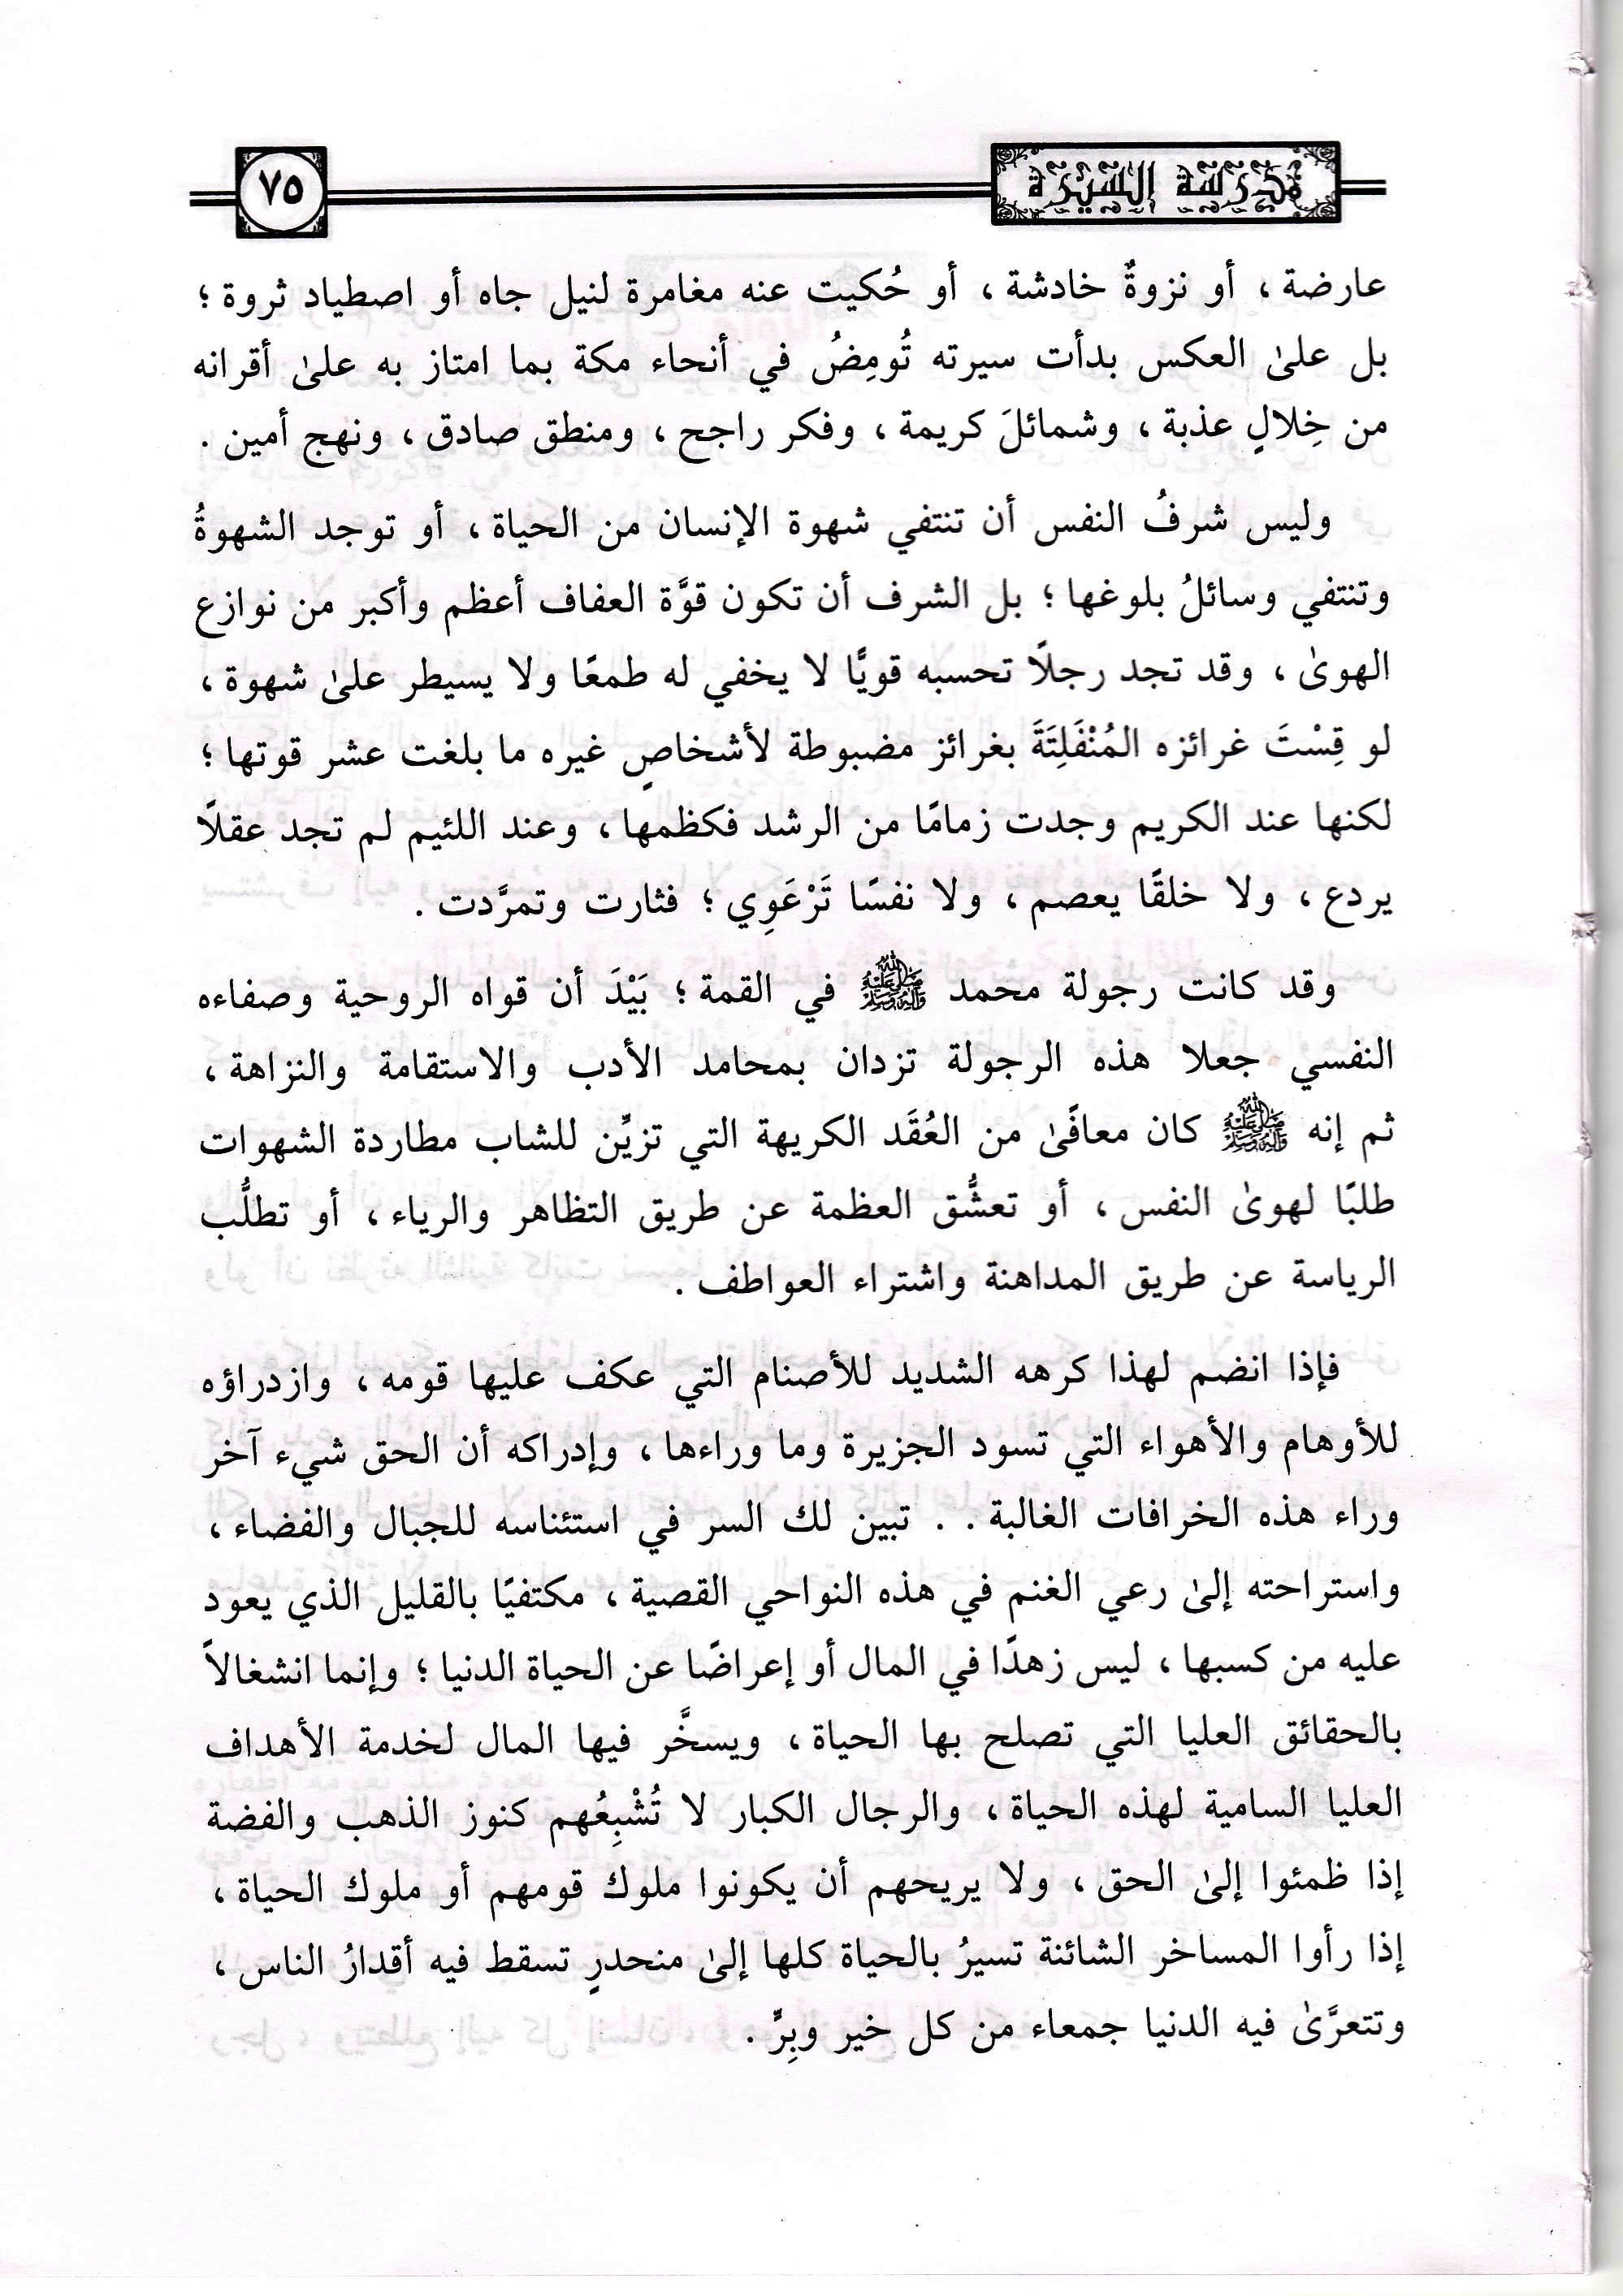 مدرسة السيرة
٧٥
عارضة ، أو نزوةٌ خادشة ، أو حُكيت عنه مغامرة لنيل جاه أو اصطياد ثروة ؛
بل علىٰ العكس بدأت سيرته تُومِضُ في أنحاء مكة بما امتاز به علىٰ أقرانه
من خِلالٍ عذبة ، وشمائلَ كريمة ، وفكر راجح ، ومنطق صادق ، ونهج أمين .
وليس شرفُ النفس أن تنتفي شهوة الإنسان من الحياة ، أو توجد الشهوةُ
وتنتفي وسائلُ بلوغها ؛ بل الشرف أن تكون قوَّة العفاف أعظم وأكبر من نوازع
الهوىٰ ، وقد تجد رجلًا تحسبه قويًّا لا يخفي له طمعًا ولا يسيطر علىٰ شهوة ،
لو قِسْتَ غرائزه المُنْفَلِتَةَ بغرائز مضبوطة لأشخاصٍ غيره ما بلغت عشر قوتها ؛
لكنها عند الكريم وجدت زمامًا من الرشد فكظمها ، وعند اللئيم لم تجد عقلًا
يردع ، ولا خلقًا يعصم ، ولا نفسًا تَرْعَوِي ؛ فثارت وتمرَّدت .
وقد كانت رجولة محمد ﷺ في القمة ؛ بَيْدَ أن قواه الروحية وصفاءه
النفسي جعلا هذه الرجولة تزدان بمحامد الأدب والاستقامة والنزاهة ،
ثم إنه ﷺ كان معافًىٰ من العُقَد الكريهة التي تزيِّن للشاب مطاردة الشهوات
طلبًا لهوىٰ النفس ، أو تعشُّق العظمة عن طريق التظاهر والرياء ، أو تطلُّب
الرياسة عن طريق المداهنة واشتراء العواطف .
فإذا انضم لهذا كرهه الشديد للأصنام التي عكف عليها قومه ، وازدراؤه
للأوهام والأهواء التي تسود الجزيرة وما وراءها ، وإدراكه أن الحق شيء آخر
وراء هذه الخرافات الغالبة . . تبين لك السر في استئناسه للجبال والفضاء ،
واستراحته إلىٰ رعي الغنم في هذه النواحي القصية ، مكتفيًا بالقليل الذي يعود
عليه من كسبها ، ليس زهدًا في المال أو إعراضًا عن الحياة الدنيا ؛ وإنما انشغالاً
بالحقائق العليا التي تصلح بها الحياة ، ويسخَّر فيها المال لخدمة الأهداف
العليا السامية لهذه الحياة ، والرجال الكبار لا تُشْبِعُهم كنوز الذهب والفضة
إذا ظمئوا إلىٰ الحق ، ولا يريحهم أن يكونوا ملوك قومهم أو ملوك الحياة ،
إذا رأوا المساخر الشائنة تسيرُ بالحياة كلها إلىٰ منحدرٍ تسقط فيه أقدارُ الناس ،
وتتعرَّىٰ فيه الدنيا جمعاء من كل خير وبِرٍّ .